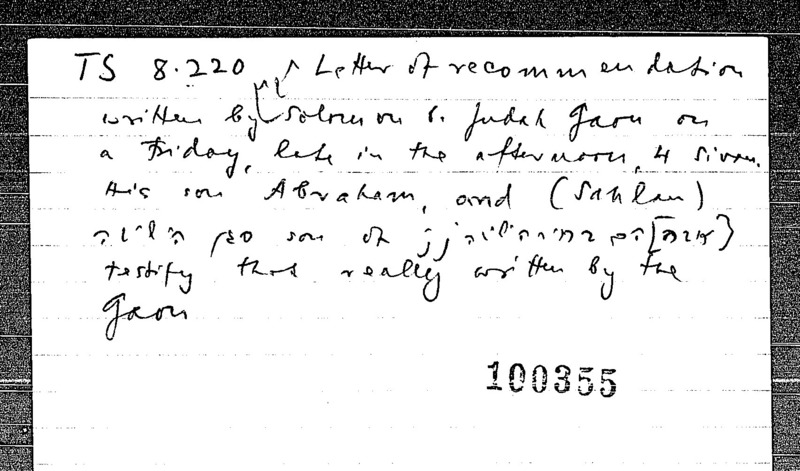 TS 8.220 Letter of recommendation
written by Solomon b. Judah Gaon on
a Friday, late in the afternoon, 4 Sivan.
His son Abraham, and (Sahlan)
סגן הישיבה son of אברהם] בחיר הישיבה
testify that really written by the
Gaon
100355